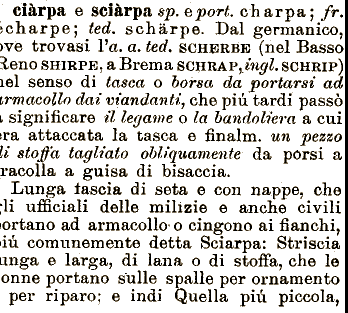 ciàrpa e sciàrpa sp. e port. charpa; fr.
écharpe; ted. schärpe. Dal germanico,
ove trovasi l'a. a. ted. SCHERBE (nel Basso
Reno SHIRPE, a Brema SCHRAP, ingl. SCHRIP)
nel senso di tasca o borsa da portarsi ad
armacollo dai viandanti, che più tardi passò
a significare il legame o la bandoliera a cui
era attaccata la tasca e finalm. un pezzo
di stoffa tagliato obliquamente da porsi a
tracolla a guisa di bisaccia.
Lunga fascia di seta e con nappe, che
gli ufficiali delle milizie e anche civili
portano ad armacollo o cingono ai fianchi,
più comunemente detta Sciarpa: Striscia
lunga e larga, di lana o di stoffa, che le
donne portano sulle spalle per ornamento
o per riparo; e indi Quella più piccola,